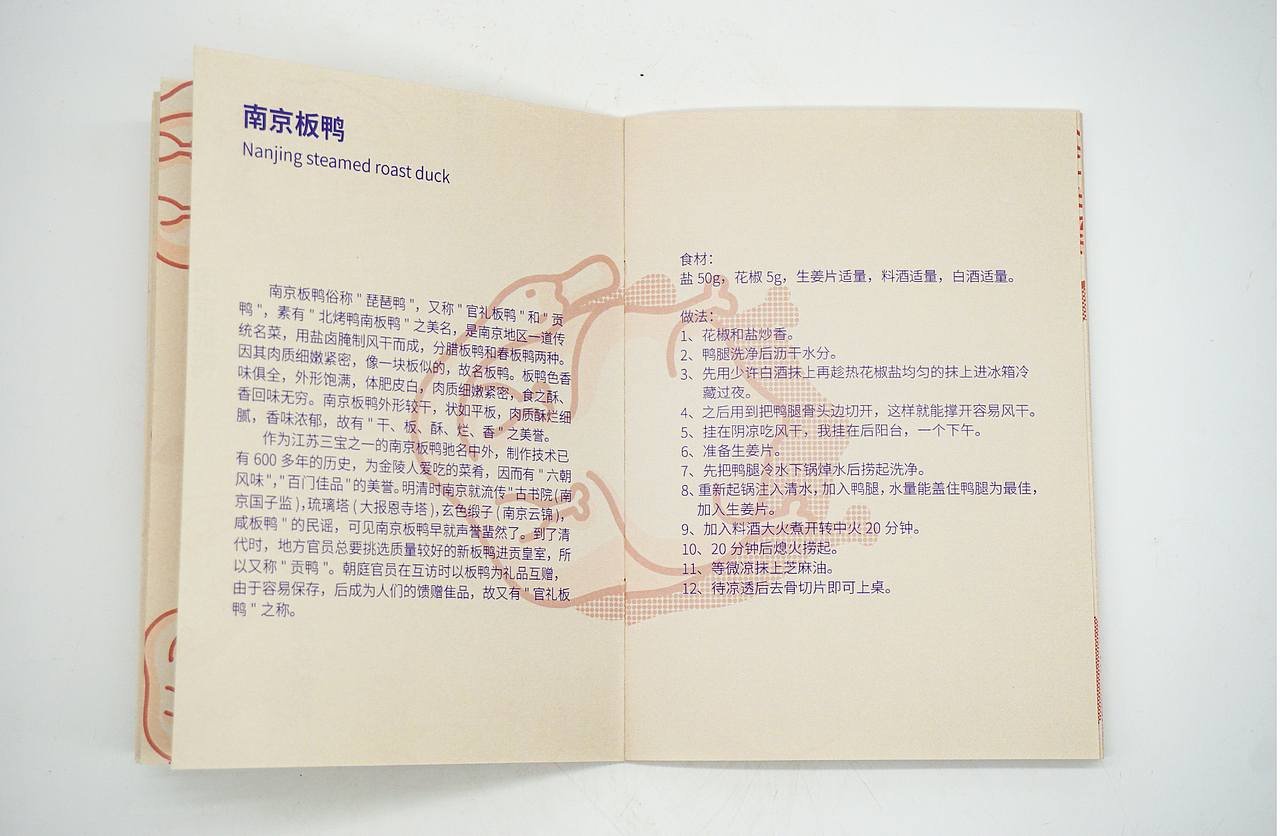 南京板鸭
Nanjing steamed roast duck
南京板鸭俗称 " 琵琶鸭 "，又称 " 官礼板鸭 " 和 " 贡
鸭 "，素有 " 北烤鸭南板鸭 " 之美名，是南京地区一道传
统名菜，用盐卤腌制风干而成，分腊板鸭和春板鸭两种。
因其肉质细嫩紧密，像一块板似的，故名板鸭。板鸭色香
味俱全，外形饱满，体肥皮白，肉质细嫩紧密，食之酥、
香回味无穷。南京板鸭外形较干，状如平板，肉质酥烂细
腻，香味浓郁，故有 " 干、板、酥、烂、香 " 之美誉。
作为江苏三宝之一的南京板鸭驰名中外，制作技术已
有 600 多年的历史，为金陵人爱吃的菜肴，因而有 " 六朝
风味 "," 百门佳品 " 的美誉。明清时南京就流传 " 古书院 (南
京国子监 ), 琉璃塔 ( 大报恩寺塔 ), 玄色缎子 ( 南京云锦 ),
咸板鸭 " 的民谣，可见南京板鸭早就声誉蜚然了。到了清
代时，地方官员总要挑选质量较好的新板鸭进贡皇室，所
以又称 " 贡鸭 "。朝庭官员在互访时以板鸭为礼品互赠，
由于容易保存，后成为人们的馈赠佳品，故又有 " 官礼板
鸭 " 之称。
食材：
盐 50g，花椒 5g，生姜片适量，料酒适量，白酒适量。
做法：
1、花椒和盐炒香。
2、鸭腿洗净后沥干水分。
3、先用少许白酒抹上再趁热花椒盐均匀的抹上进冰箱冷
藏过夜。
4、之后用到把鸭腿骨头边切开，这样就能撑开容易风干。
5、挂在阴凉吃风干，我挂在后阳台，一个下午。
6、准备生姜片。
7、先把鸭腿冷水下锅焯水后捞起洗净。
8、重新起锅注入清水，加入鸭腿，水量能盖住鸭腿为最佳，
加入生姜片。
9、加入料酒大火煮开转中火 20 分钟。
10、20 分钟后熄火捞起。
11、等微凉抹上芝麻油。
12、待凉透后去骨切片即可上桌。